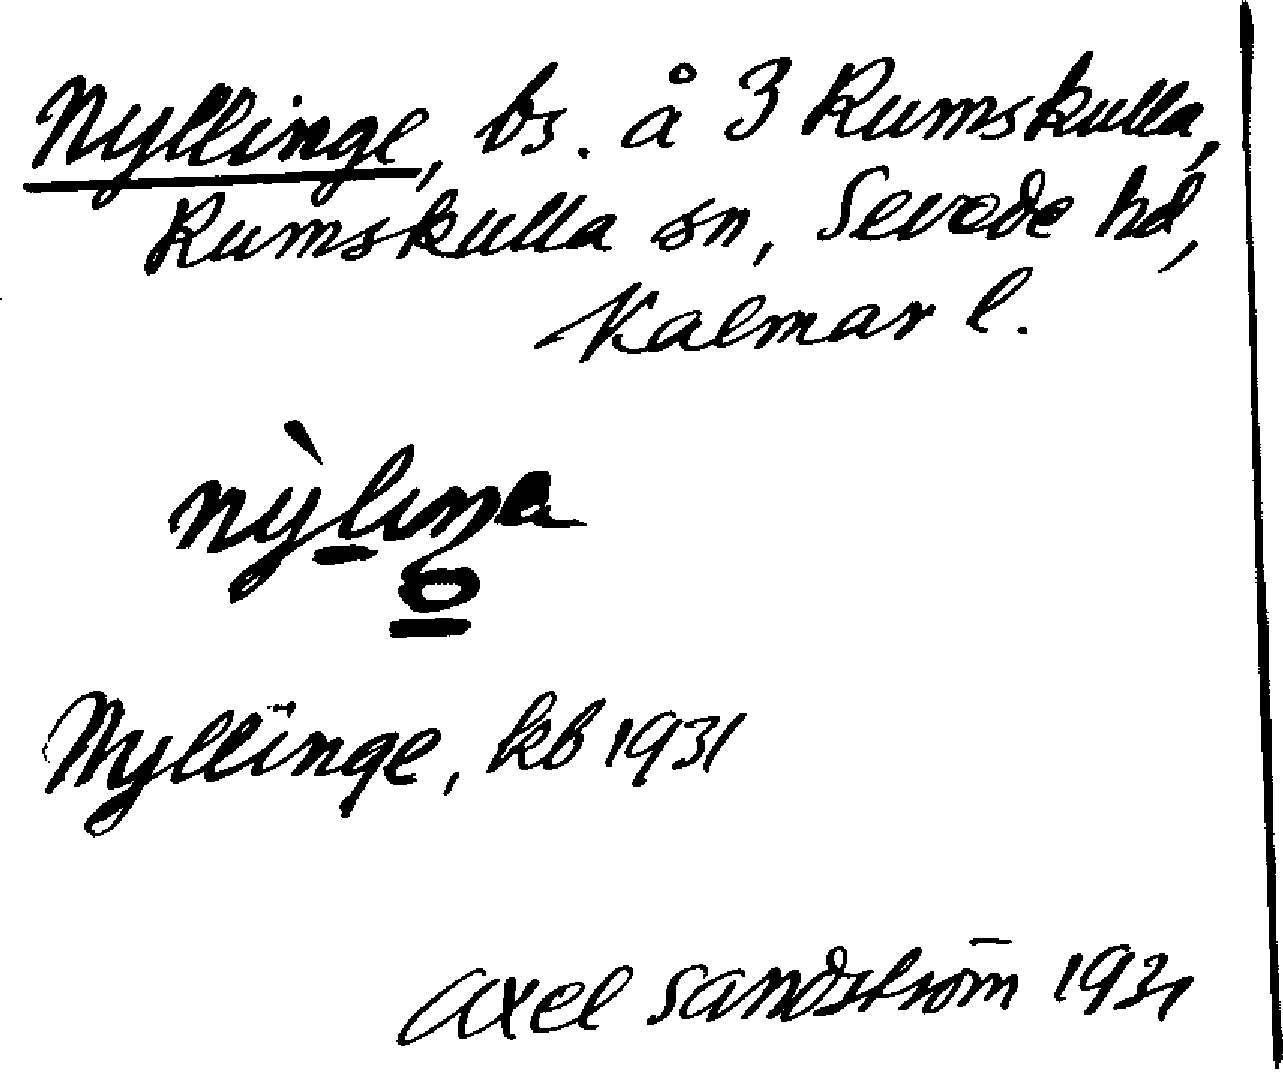 Nyllinge, bs. å 3 Rumskulla,
Rumskulla sn, Sevede hd,
Kalmar l.
Nyllinge, kb 1931
Axel Sandström 1931